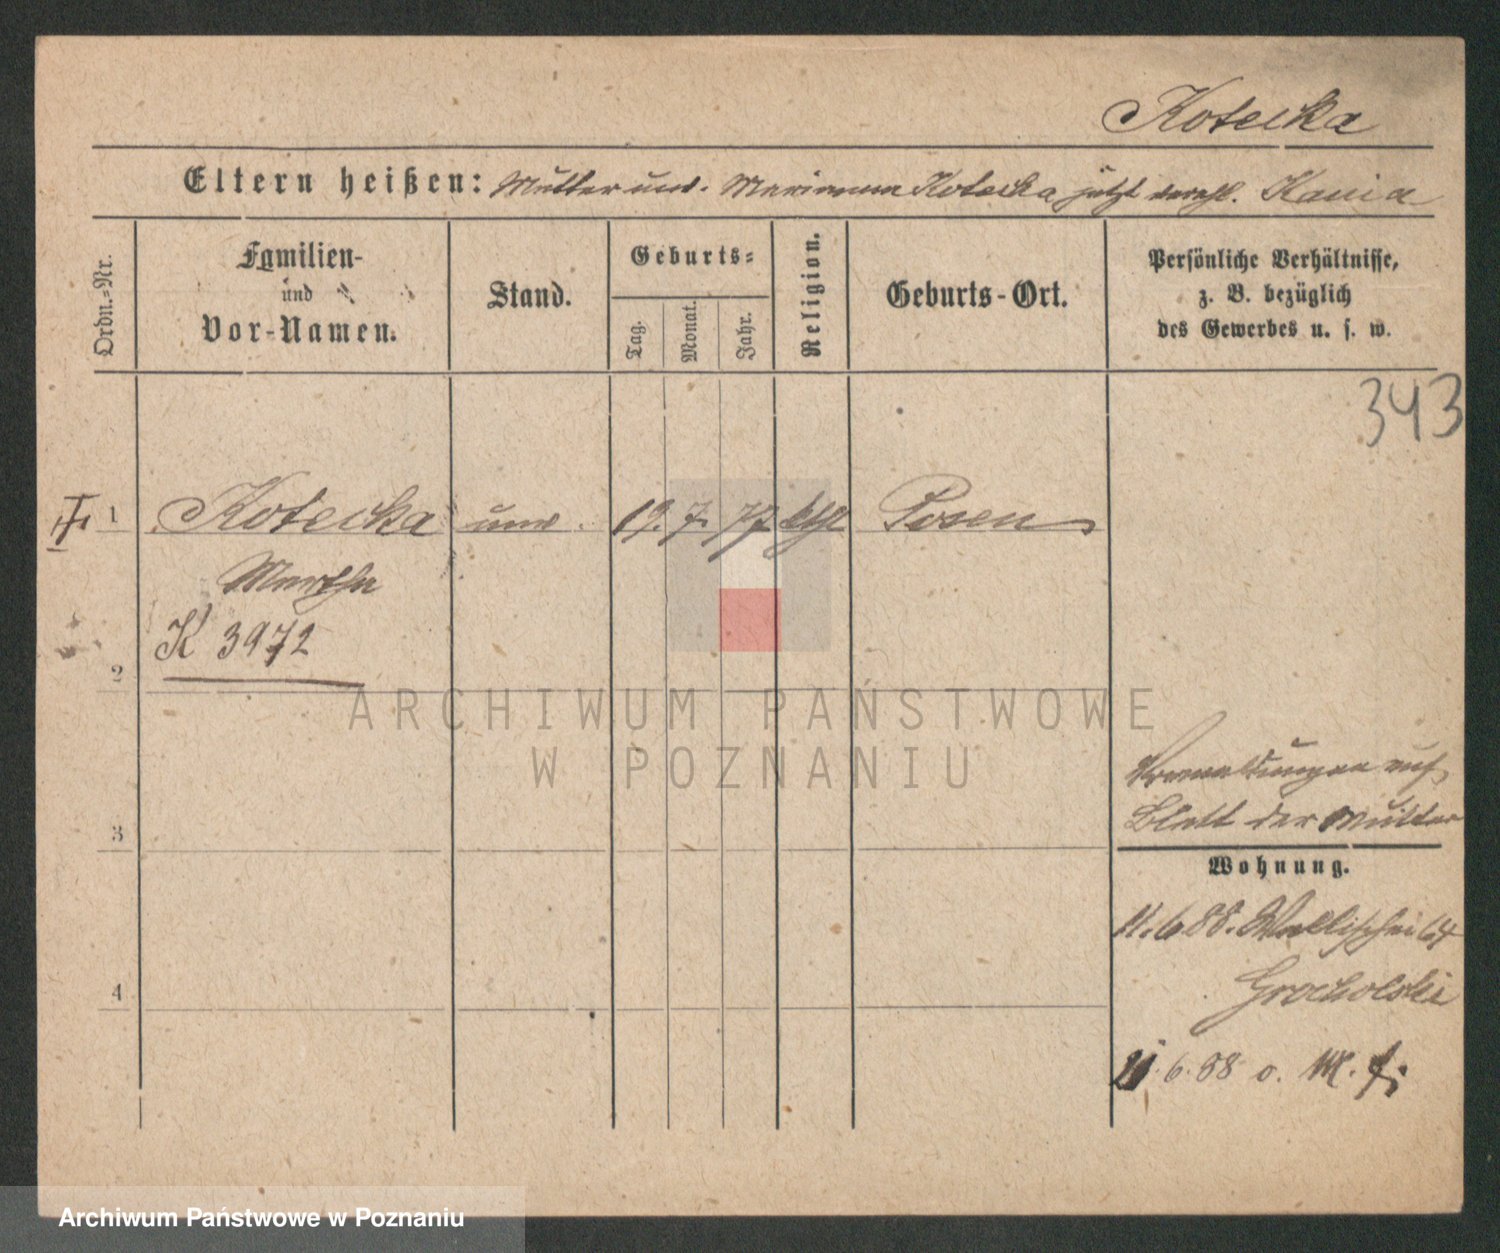 Kotecka
Eltern heißen: Mutter unv. Marianna Kotecka jetzt verehl. Kania
Ordn.-Nr.
Familien-
und
Vor-Namen.
Stand.
Geburts-
Tag.
Monat.
Jahr.
Religion.
Geburts-Ort.
Persönliche Verhältnisse,
z. B. bezüglich
des Gewerbes u. s. w.
343
1 Kotecka unv. 19. 7. 77 kth Posen
Martha
K 3972
2
ARCHIWUM PAŃSTWOWE
W POZNANIU
auf
Blatt der Mutter
3
Wohnung.
11. 6. 88. Wallischei 64
Grocholski
4
6. 88 o.
Archiwum Państwowe w Poznaniu